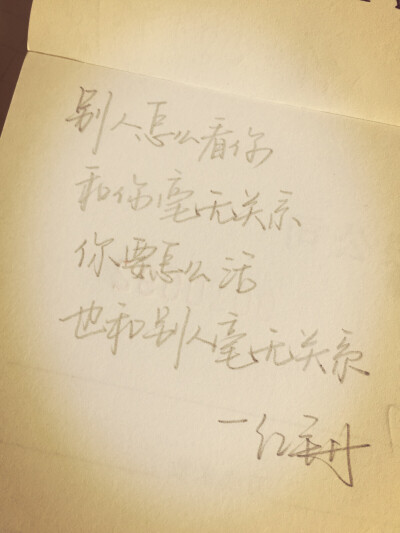 别人怎么看你
和你毫无关系
你要怎么活
也和别人毫无关系